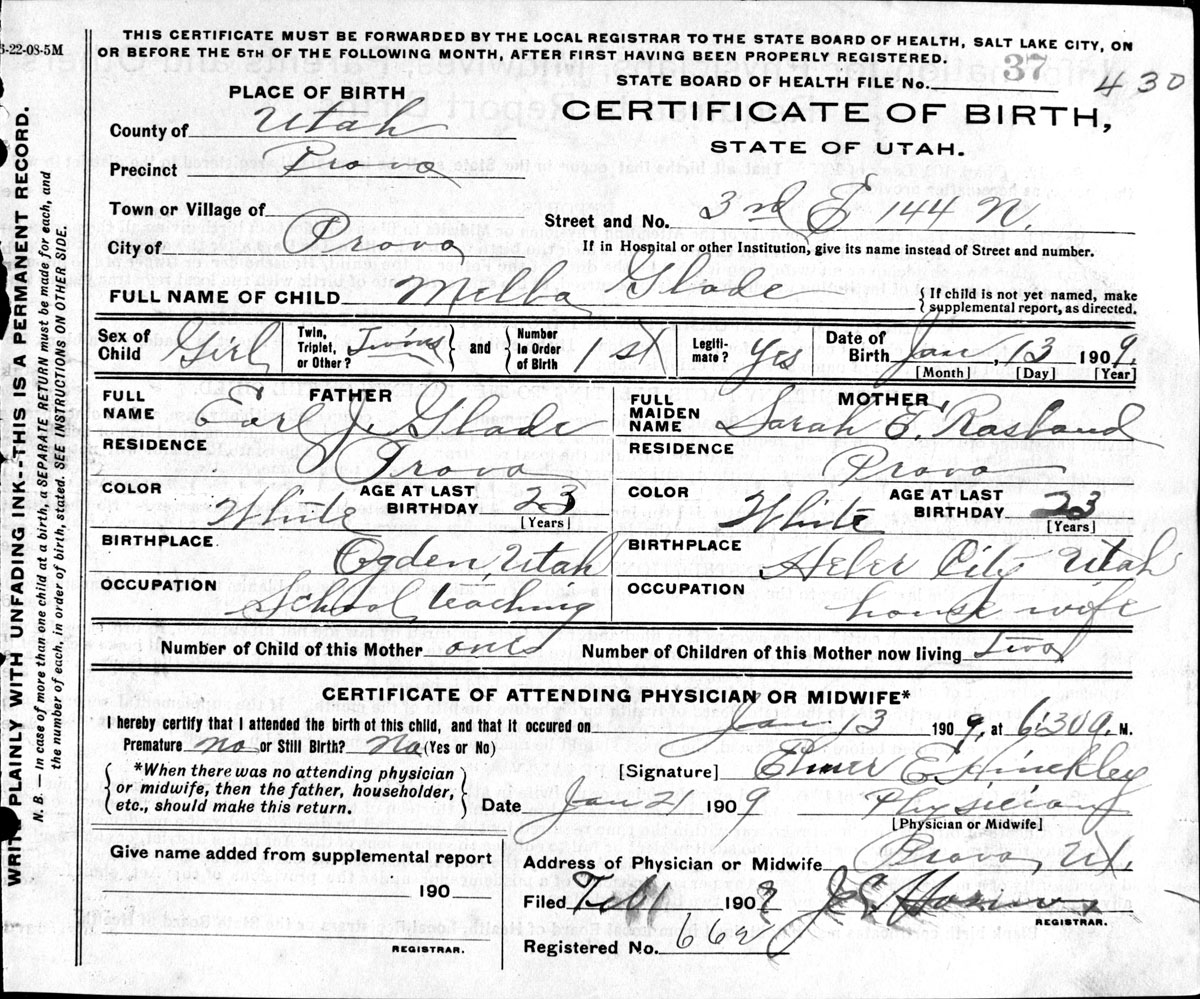 5-22-08-5M
THIS CERTIFICATE MUST BE FORWARDED BY THE LOCAL REGISTRAR TO THE STATE BOARD OF HEALTH, SALT LAKE CITY, ON
OR BEFORE THE 5TH OF THE FOLLOWING MONTH, AFTER FIRST HAVING BEEN PROPERLY REGISTERED.
STATE BOARD OF HEALTH FILE No. 37 430
PLACE OF BIRTH
CERTIFICATE OF BIRTH,
STATE OF UTAH.
County of Utah
Precinct Provo
Town or Village of
Street and No. 3rd E 144 N.
City of Provo
If in Hospital or other Institution, give its name instead of Street and number.
FULL NAME OF CHILD Melba Glade
{ If child is not yet named, make
supplemental report, as directed.
Sex of Child Girl
Twin, Triplet, or Other? Twins } and { Number in Order of Birth 1st
Legiti-mate? Yes
Date of Birth Jan, 13 1909.
[Month] [Day] [Year]
FATHER
FULL NAME Earl J. Glade
RESIDENCE Provo
COLOR White AGE AT LAST BIRTHDAY 23 [Years]
BIRTHPLACE Ogden, Utah
OCCUPATION School teaching
MOTHER
FULL MAIDEN NAME Sarah E. Rasband
RESIDENCE Provo
COLOR White AGE AT LAST BIRTHDAY 23 [Years]
BIRTHPLACE Heber City Utah
OCCUPATION house wife
Number of Child of this Mother Number of Children of this Mother now living Two
CERTIFICATE OF ATTENDING PHYSICIAN OR MIDWIFE*
I hereby certify that I attended the birth of this child, and that it occured on Jan 13 1909, at 6:30 a. M.
Premature no or Still Birth? No (Yes or No)
{ *When there was no attending physician
or midwife, then the father, householder,
etc., should make this return. }
[Signature] Elmer E. Hinckley
Date Jan 21 1909 Physician
[Physician or Midwife]
Give name added from supplemental report
190
REGISTRAR.
Address of Physician or Midwife Provo, Ut.
Filed Feb 1 190
REGISTRAR.
Registered No. 662
WRITE PLAINLY WITH UNFADING INK--THIS IS A PERMANENT RECORD.
N. B. — In case of more than one child at a birth, a SEPARATE RETURN must be made for each, and
the number of each, in order of birth, stated. SEE INSTRUCTIONS ON OTHER SIDE.